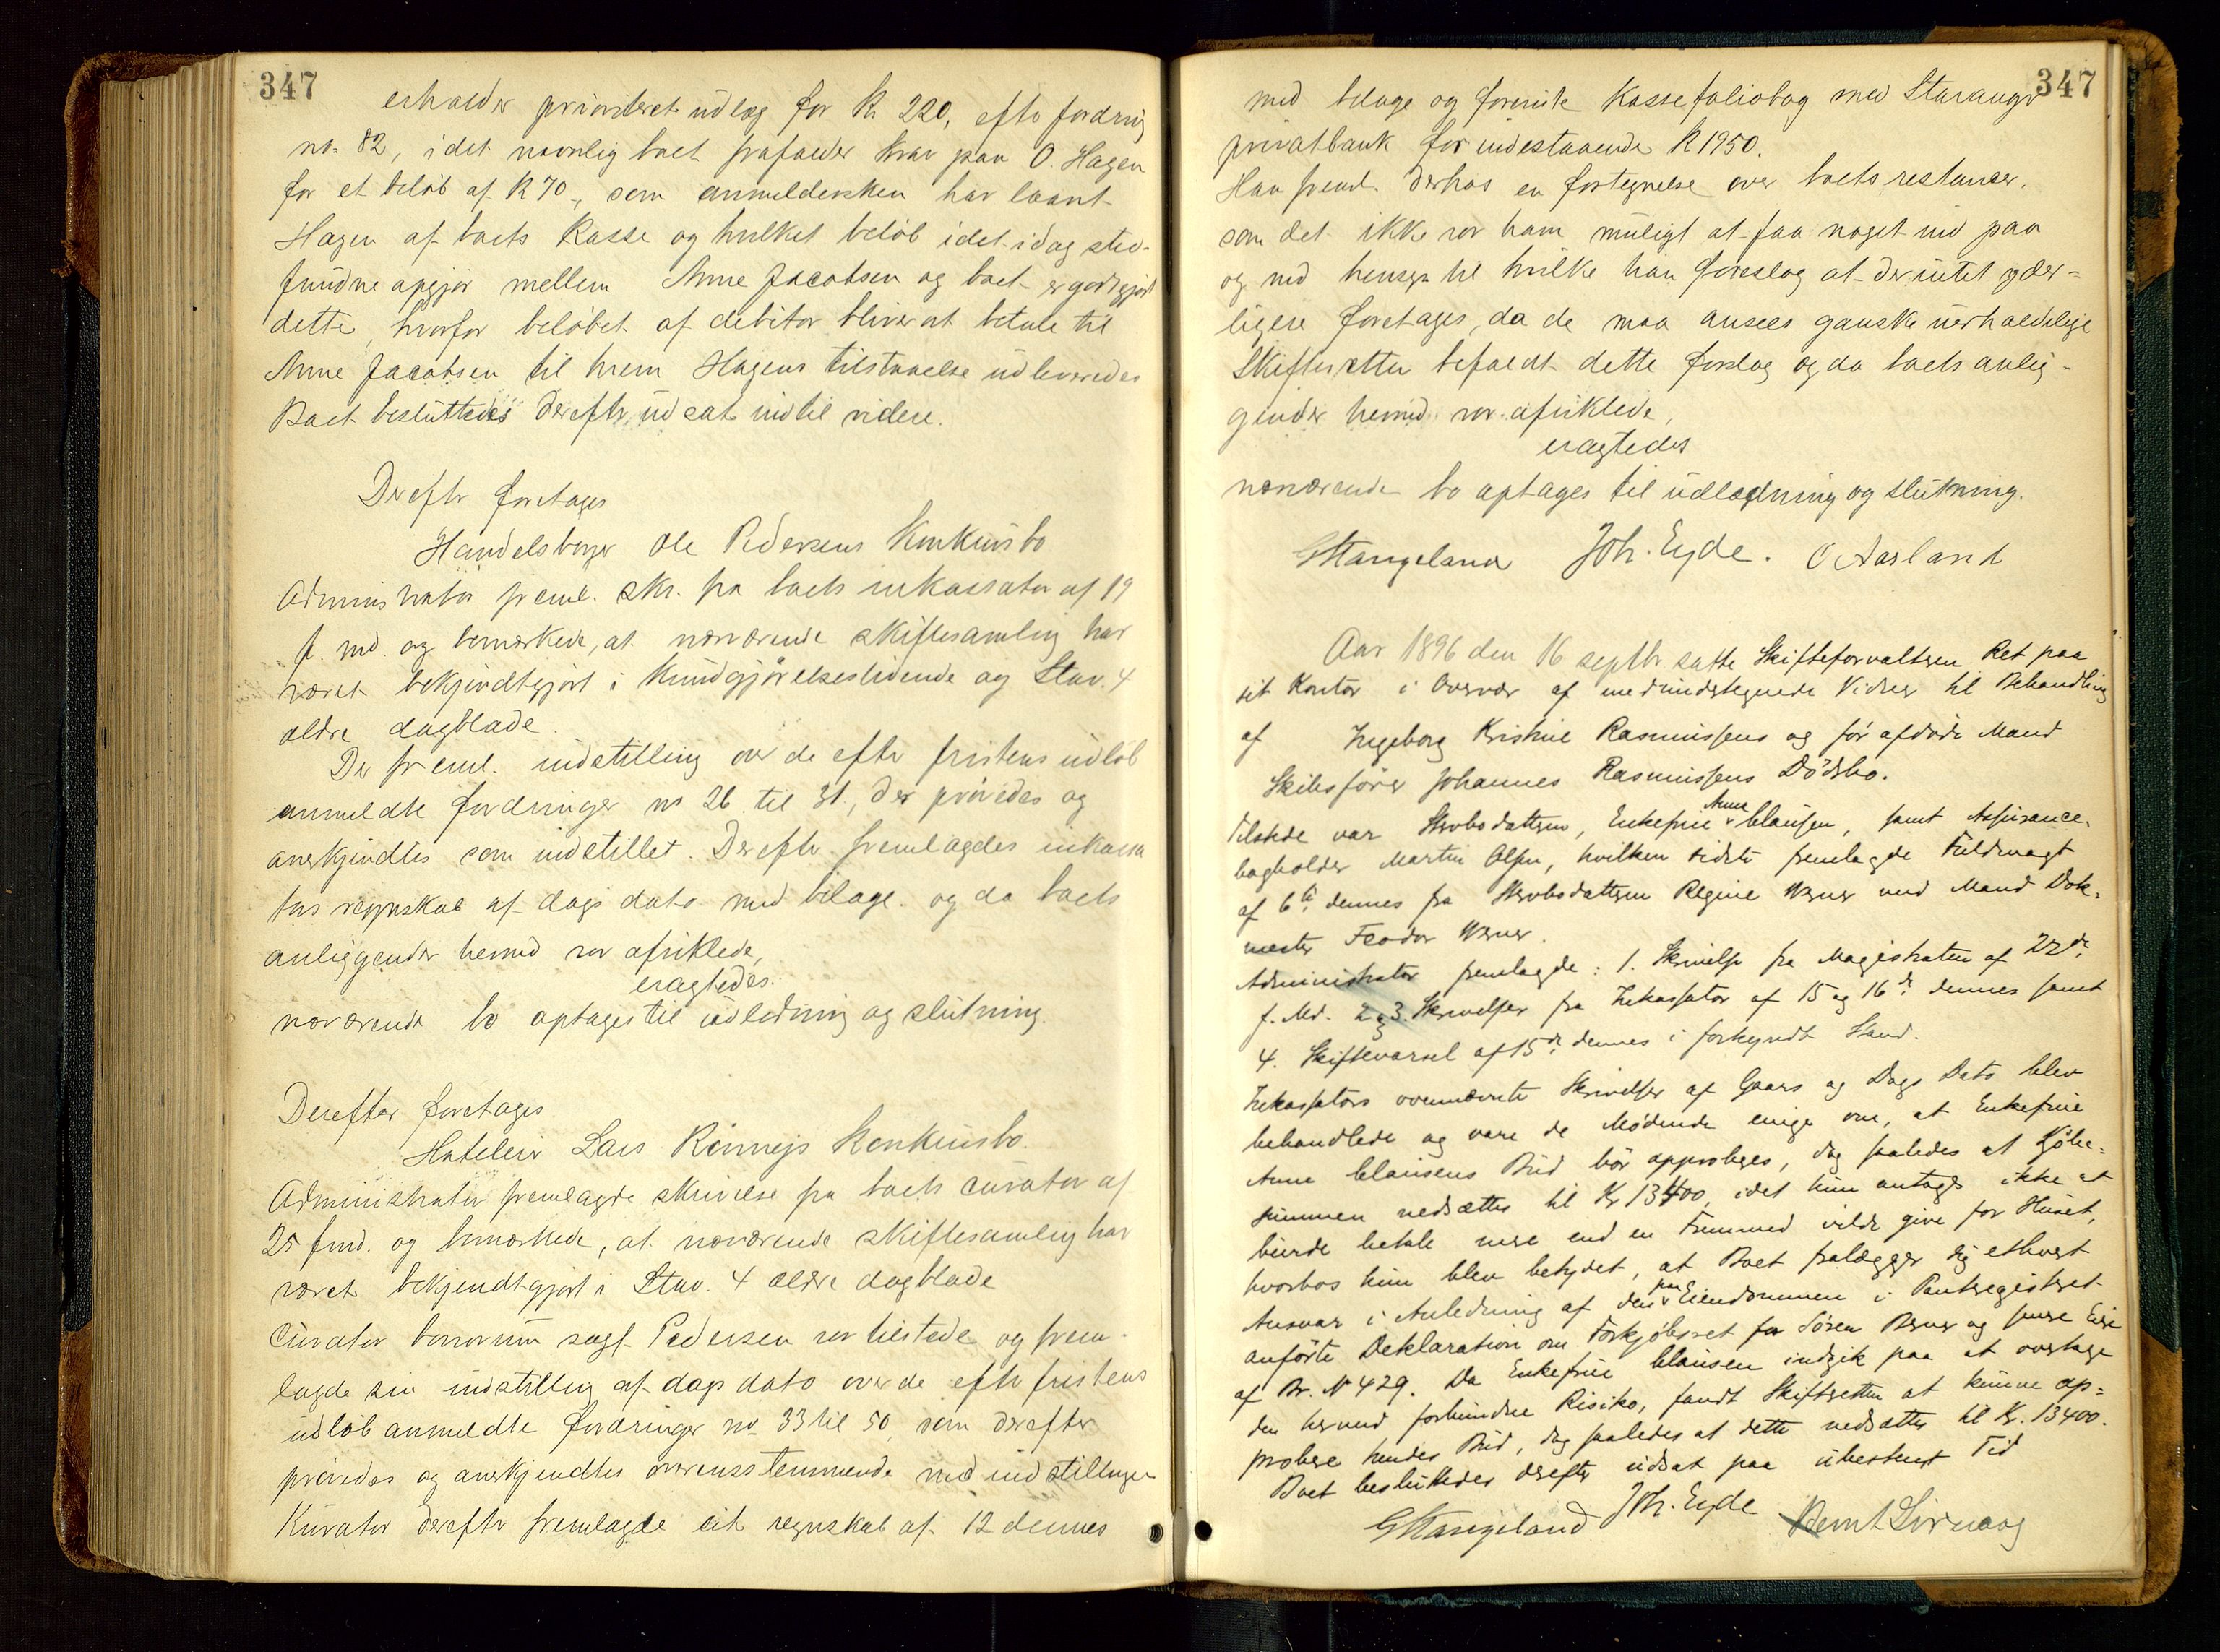 347
erholder prioriteret udlæg for Kr 220, efter fordring
no. 82, idet navnlig boet frafalder krav paa O. Hagen
for et beløb af K 70-, som anmeldersken har laant
Hagen af boets Kasse og hvilket beløb i det idag sted-
fundne opgjør mellem Anne Jacobsen og boet er godtgjort
dette, hvorfor beløbet af debitor bliver at betale til
Anne Jacobsen til hvem Hagens tilstaaelse udleveredes
Boet besluttedes derefter udsat indtil videre.
Derefter foretages
Handelsborger Ole Pedersens Konkursbo
Administrator freml. skr. fra boets inkassator af 19
f. md. og bemærkede, at nærværende skiftesamling har
været bekjendtgjort i Kundgjørelsestidende og Stav. 4
ældre dagblade.
Der freml. indstilling over de efter fristens udløb
anmeldte fordringer no 26 til 31, der prøvedes og
anerkjendtes som indstillet. Derefter fremlagdes inkassa
tors regnskab af dags dato med bilage. og da boets
anliggender hermed var afviklede,
eragtedes:
nærværende bo optages til udlodning og slutning.
Derefter foretages
Hoteleier Lars Rønnejs Konkursbo.
Administrator fremlagde skrivelse fra boets curator af
25 f md. og bemærkede, at nærværende skiftesamling har
været bekjendtgjort i Stav. 4 ældre dagblade
Curator bonorum sagf. Pedersen var tilstede og frem-
lagde sin indstilling af dags dato over de efter fristens
udløb anmeldte fordringer no 33 til 50, som derefter
prøvedes og anerkjendtes overensstemmende med indstillingen
Kurator derefter fremlagde sit regnskab af 12 dennes
347
med bilage og forenede Kassefoliobog med Stavanger
privatbank for indestaaende K 1950.
Han freml. derhos en fortegnelse over boets restancer,
som det ikke var ham muligt at faa noget ind paa
og med hensyn til hvilke han foreslog at der intet yder-
ligere foretages, da de maa ansees ganske uerholdelige
Skifteretten bifaldt dette forslag og da boets anlig-
gender hermed var afviklede,
eragtedes
nærværende bo optages til udlodning og slutning.
GStangeland Joh. Eyde. O Aarland
Aar 1896 den 16 septbr satte Skifteforvalteren Ret paa
sit Kontor i Overvær af medundertegnede Vidner til Behandling
af Ingeborg Kristine Rasmussens og før afdøde Mand
Skibsfører Johannes Rasmussens Dødsbo.
Tilstede var Stervbodatteren, Enkefrue Anne Clausen, samt Assurance-
bogholder Martin Olsen, hvilken sidste fremlagde Fuldmagt
af 6te dennes fra Stervbodatteren Regine Werner med Mand Dok-
mester Feodor Werner.
Administrator fremlagde: 1. Skrivelse fra Magistraten af 22de
f. Md. 2 og 3. Skrivelser fra Inkassator af 15 og 16de dennes samt
4. Skiftevarsel af 15de dennes i forkyndt Stand.
Inkassators ovennævnte Skrivelser af Gaars og Dags Dato blev
behandlede og vare de Mødende enige om, at Enkefrue
Anne Clausens Bud bør approberes, dog saaledes at Kjøbe-
summen nedsættes til Kr 13400, idet hun antages ikke at
burde betale mere end en Fremmed vilde give for Huset,
hvorhos hun blev betydet, at Boet fralægger sig ethvert
Ansvar i Anledning af den paa Eiendommen i Pantregistret
anførte Deklaration om Forkjøbsret for Søren Berner og senere Eiere
af Br. No 429. Da Enkefrue Clausen indgik paa at overtage
den hermed forbundne Risiko, fandt Skifteretten at kunne ap-
probere hendes Bud, dog saaledes at dette nedsættes til Kr. 13400.
Boet besluttedes derefter udsat paa ubestemt Tid
GStangeland Joh. Eyde Bernt Sirnaag